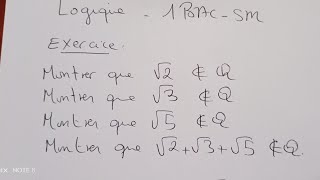 Logique - 1 BAC - SM
Exercice.
Montrer que √2 ∉ Q
Montrer que √3 ∉ Q
Montrer que √5 ∉ Q
Montrer que √2+√3+√5 ∉ Q.
NOTE 8